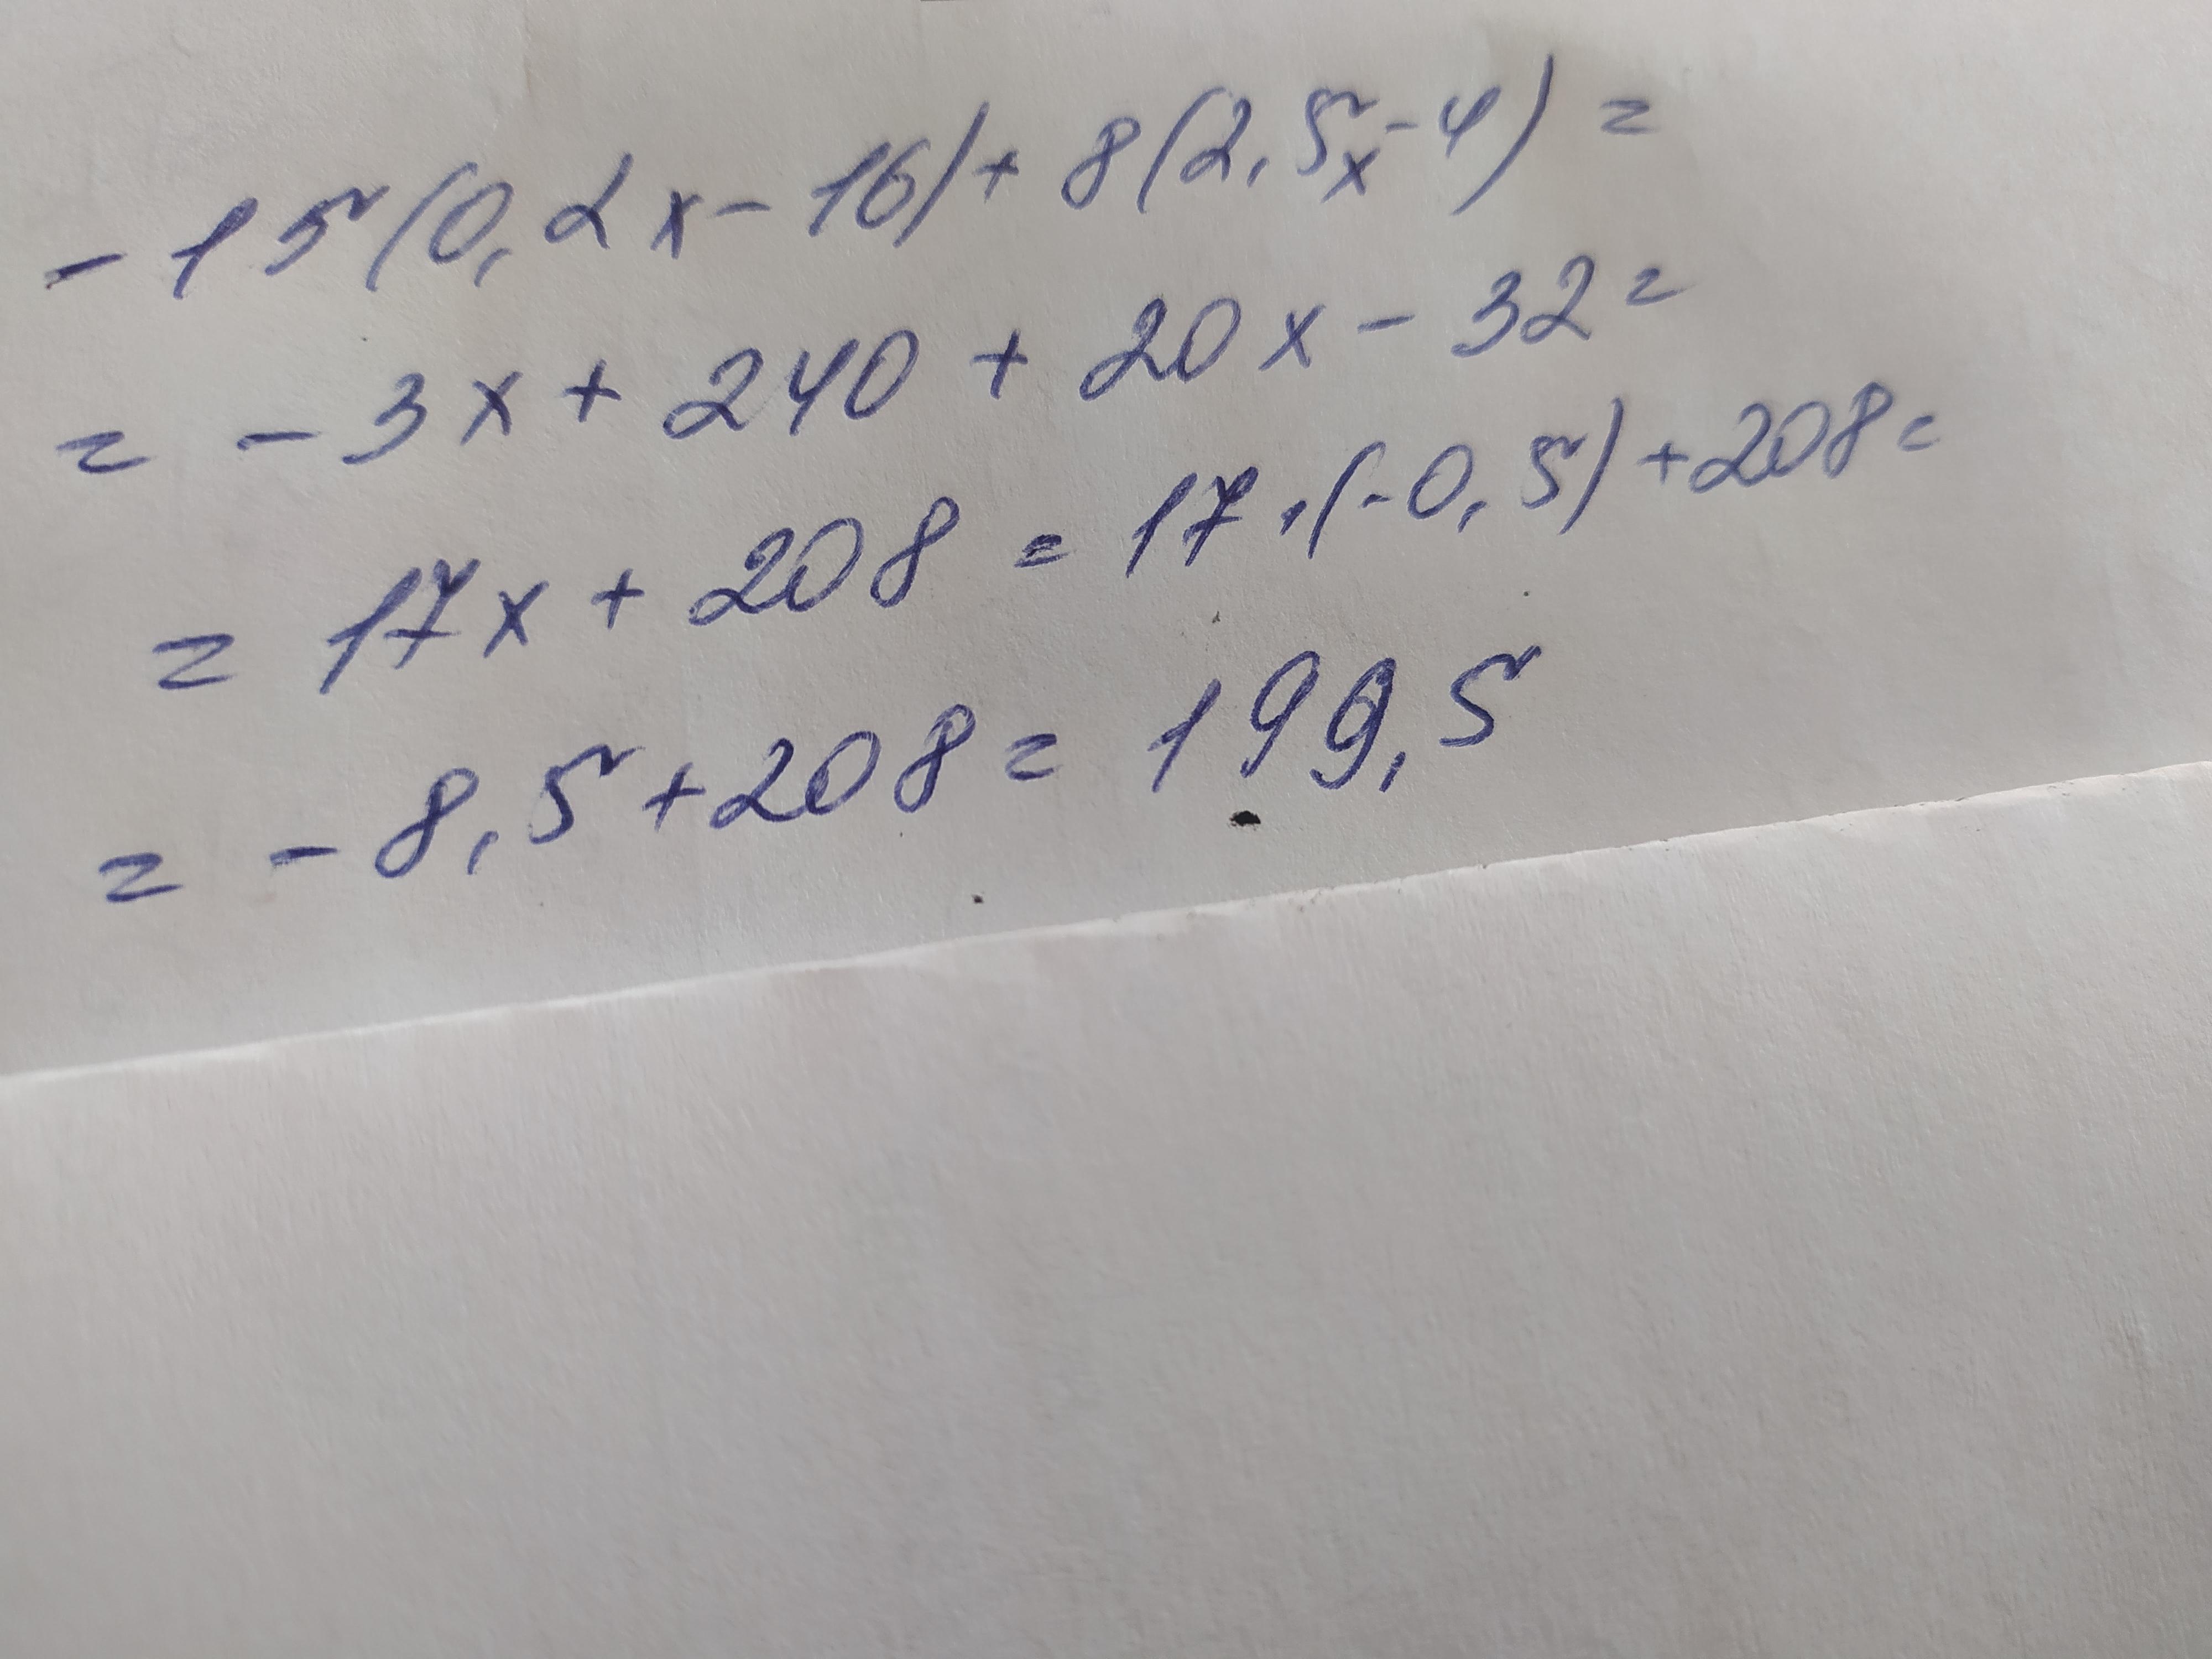 - 15(0,2x - 16) + 8(2,5x - 4) =
= - 3x + 240 + 20x - 32 =
= 17x + 208 = 17 · (-0,5) + 208 =
= - 8,5 + 208 = 199,5